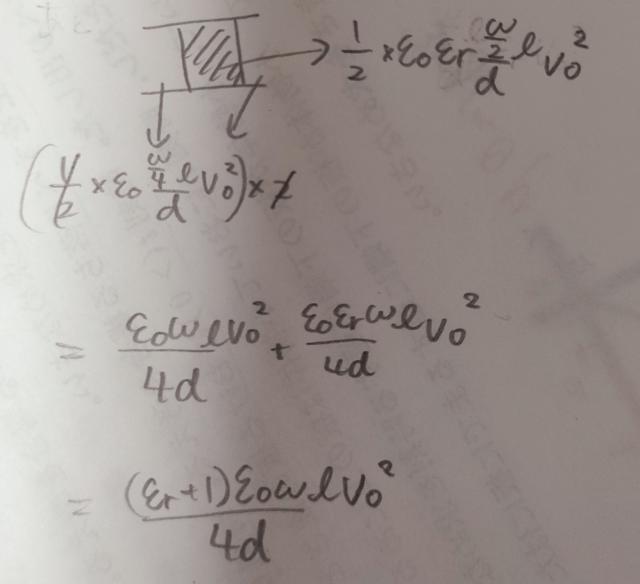 1/2 × ε₀εr (w/2)/d l v₀²
(1/2 × ε₀ (w/4)/d l v₀²) × 2
= ε₀wlv₀²/4d + ε₀εrwlv₀²/4d
= (εr+1)ε₀wlv₀²/4d